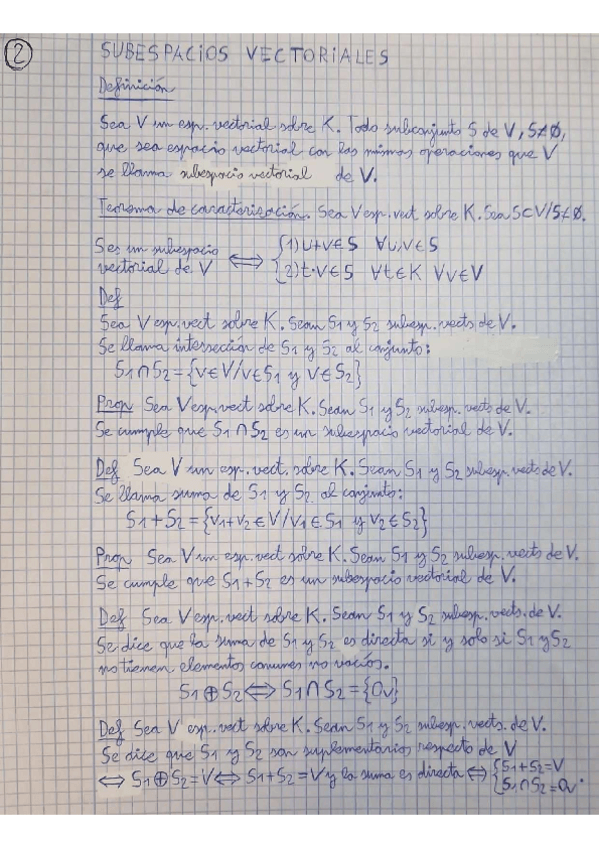 2
SUBESPACIOS VECTORIALES
Definición
Sea V un esp. vectorial sobre K. Todo subconjunto S de V, S≠∅,
que sea espacio vectorial con las mismas operaciones que V
se llama subespacio vectorial de V.
Teorema de caracterización. Sea V esp. vect sobre K. Sea S⊂V/S≠∅.
S es un subespacio vectorial de V ⟺ { 1) u+v∈S ∀u,v∈S
2) t·v∈S ∀t∈K ∀v∈V
Def
Sea V esp. vect sobre K. Sean S1 y S2 subesp. vects. de V.
Se llama intersección de S1 y S2 al conjunto:
S1∩S2={v∈V/v∈S1 y v∈S2}
Prop Sea V esp. vect sobre K. Sean S1 y S2 subesp. vects de V.
Se cumple que S1∩S2 es un subespacio vectorial de V.
Def Sea V un esp. vect. sobre K. Sean S1 y S2 subesp. vects de V.
Se llama suma de S1 y S2 al conjunto:
S1+S2={v1+v2∈V/v1∈S1 y v2∈S2}
Prop Sea V un esp. vect sobre K. Sean S1 y S2 subesp. vects de V.
Se cumple que S1+S2 es un subespacio vectorial de V.
Def Sea V esp. vect sobre K. Sean S1 y S2 subesp. vects. de V.
Se dice que la suma de S1 y S2 es directa si y solo si S1 y S2
no tienen elementos comunes no vacíos.
S1⊕S2⟺S1∩S2={0v}
Def Sea V esp. vect sobre K. Sean S1 y S2 subesp. vects. de V.
Se dice que S1 y S2 son suplementarios respecto de V
⟺ S1⊕S2=V ⟺ S1+S2=V y la suma es directa ⟺ { S1+S2=V
S1∩S2=0v.